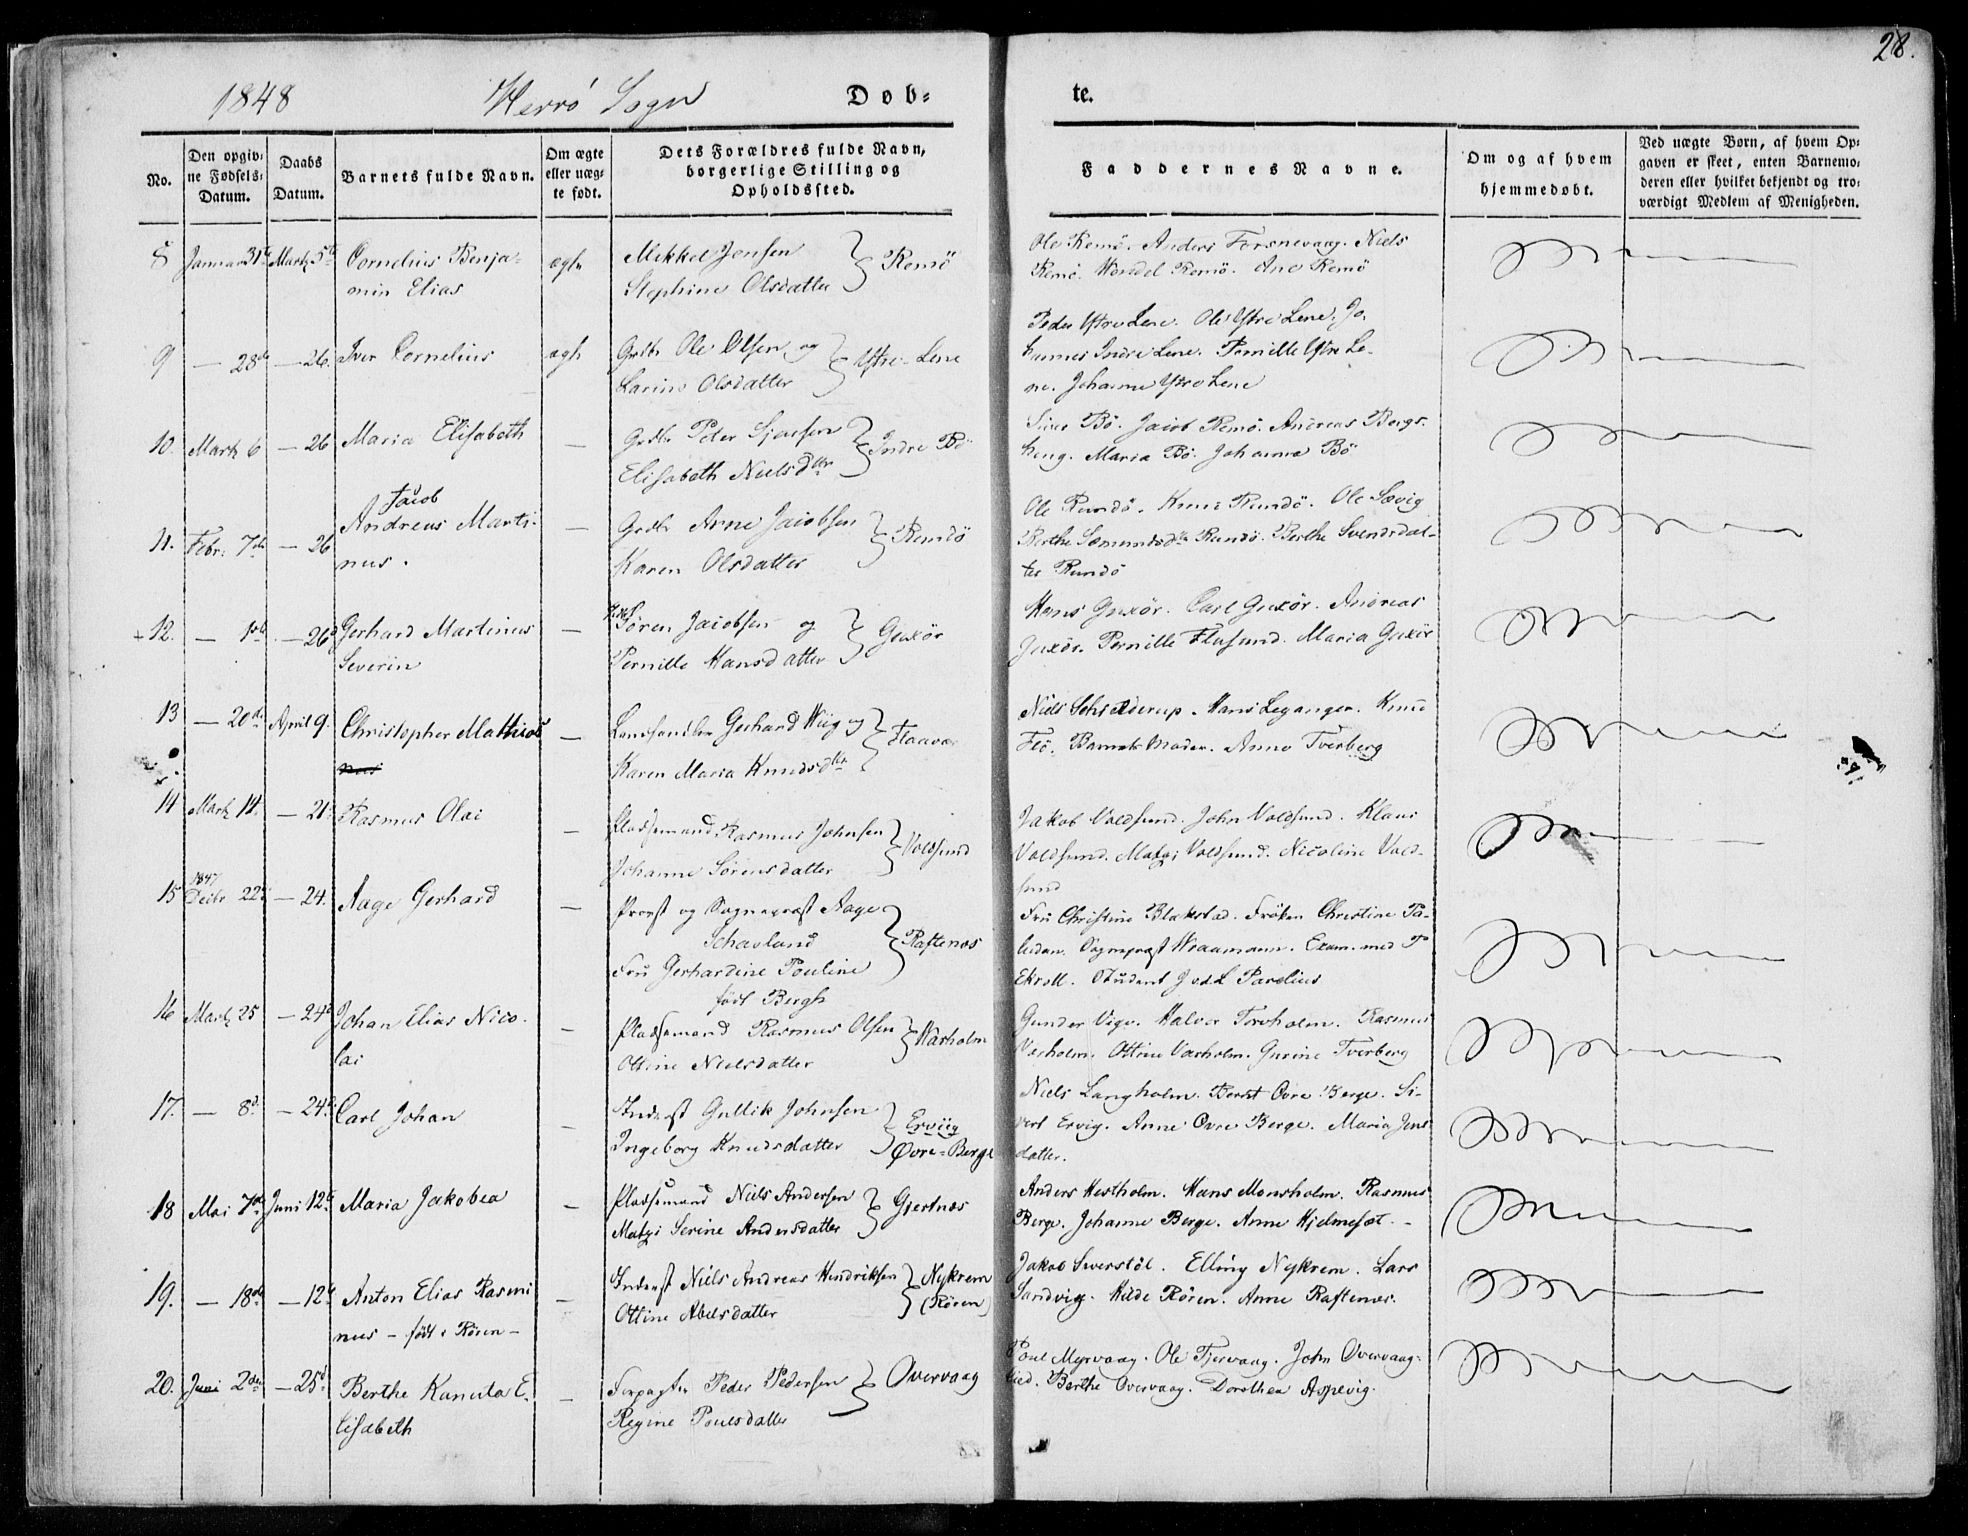 28.
1848 Herrö Sogn Døb-
te.
No.
Den opgiv-
ne Fødsels-
Datum.
Daabs
Datum.
Barnets fulde Navn.
Om ægte
eller uæg-
te født.
Dets Forældres fulde Navn,
borgerlige Stilling og
Opholdssted.
Faddernes Navne.
Om og af hvem
hjemmedøbt.
Ved uægte Børn, af hvem Op-
gaven er skeet, enten Barnemo-
deren eller hvilket bekjendt og tro-
værdigt Medlem af Menigheden.
8 Januar 31te Marts 5te Cornelius Benja-
min Elias
ægte
Mikkel Jensen
Stephine Olsdatter
Remö
Ole Remö. Anders Torsnevaag. Niels
Remö. Remö. Ane Remö
9 — 28de — 26. Iver Cornelius
ægte
Grdbr Ole Olsen og
Larine Olsdatter
Ystre-Lene
Peder Ystre Lene. Ole Ystre Lene. Jo-
hannes Indre Lene. Pernille Ystre Le-
ne. Johanne Ystre Lene
10. Marts 6 — 26 Maria Elisabeth
—
Grdbr Peter
Elisabeth Nielsdtr
Indre Bö
Bö. Jacob Remö. Andreas Bergs-
heng. Maria Bö. Johanna Bö
11. Febr. 7de — 26
Jacob
Andreas Marti-
nus.
—
Grdbr Arne Jacobsen
Karen Olsdatter
Remdö
Ole Rundö. Knud Rundö. Ole Sævig
Berthe Sæmundsdtr Rundö. Berthe Svendsdat-
ter Rundö
12. — 1ste — 26de Gerhard Martinus
Severin
—
Søren Jacobsen og
Pernille Hansdatter
Guxör
Hans Guxör. Carl Guxör. Andreas
Guxör. Pernille Flusund. Maria Guxör
13 — 20de April 9. Christopher Mathias
—
Landhandler Gerhard Wiig og
Karen Maria Knudsdtr
Flaavær
Niels Schjelderup. Hans Leganger. Knud
Flö. Barnets Moder. Anne Tverberg
14 Marts 14. — 21. Rasmus Olai
—
Pladsemand Rasmus Johnsen
Johanne Sørensdatter
Voldsund
Jakob Voldsund. John Voldsund. Klaus
Voldsund. Matzi Voldsund. Nicoline Vold-
sund
15 1847
Decbr 22. — 24. Aage Gerhard
—
Provst og Sognepræst Aage
Schavland
Fru Gerhardine Pouline
født Bergh
Raftenæs
Fru Christine Blakstad. Frøken Christine Pa-
ludan. Sognepræst Kraamann. Exam. med P
Ekroll. Student J.v.d.L. Parelius
16 Marts 25 — 24d Johan Elias Nico-
lai
—
Pladsemand Rasmus Olsen
Ottine Nielsdatter
Varholm
Gunder Vige. Halvor Torvholm. Rasmus
Varholm. Ottine Varholm. Gurine Tverberg
17. — 8d. — 24d. Carl Johan
—
Inderst Gullik Johnsen
Ingeborg Knudsdatter
Erviig
Øvre-Berge
Niels Langholm. Bernt Øvre Berge. Si-
vert Ervig. Anne Øvre Berge. Maria Jens
datter.
18 Mai 7de Juni 12te Maria Jakobea
—
Pladsemand Niels Andersen
Matzi Serine Andersdatter
Gjertnæs
Anders Hestholm. Hans Monsholm. Rasmus
Berge. Johanne Berge. Anne Hjelmesæt.
19. — 18de — 12te Anton Elias Rasmi
nus — født i Røren —
—
Inderst Niels Andreas Hendriksen
Ottine Abelsdatter
Nykrem
(Røren)
Jakob Sverstöl. Elling Nykrem. Lars
Sandvig. Hilde Rören. Anne Raftenæs.
20. Juni 2den — 25d Berthe Kanuta E-
lisabeth
—
Forpagter Peder Pedersen
Regine Poulsdatter
Overvaag
Poul Myrvaag. Ole Tjervaag. John Overvaag-
lied. Berthe Overvaag. Dorothea Aspevig.